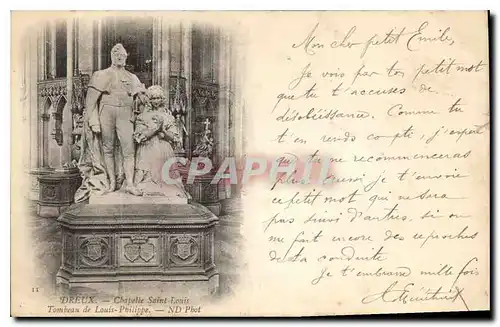 Mon cher petit Emile,
Je vois par ton petit mot
que tu t'accuses de
désobéissance. Comme tu
t'en rends compte, j'espère
que tu ne recommenceras
plus. Aussi je t'envoie
ce petit mot qui ne sera
pas suivi d'autres si on
me fait encore des reproches
de ta conduite
je t'embrasse mille fois
11
DREUX — Chapelle Saint-Louis
Tombeau de Louis-Philippe. — ND Phot
CARTOPHIL